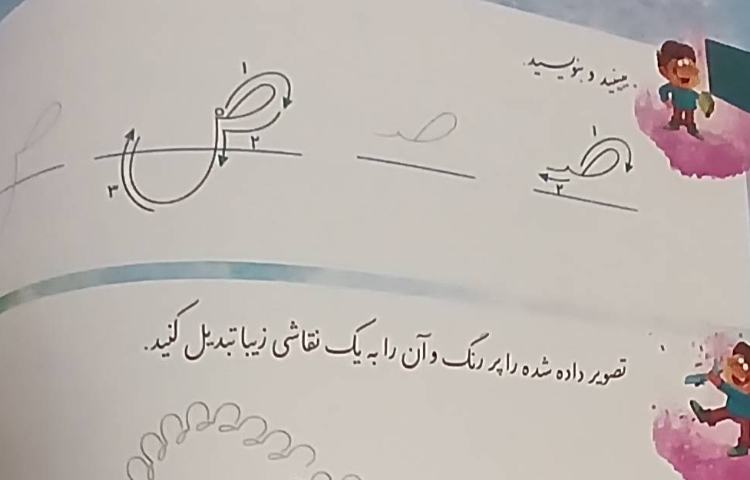 ببینید و بنویسید.
صـ ۱ ۲
صـ
ص ۱ ۲ ۳
تصویر داده شده را پر رنگ و آن را به یک نقاشی زیبا تبدیل کنید.